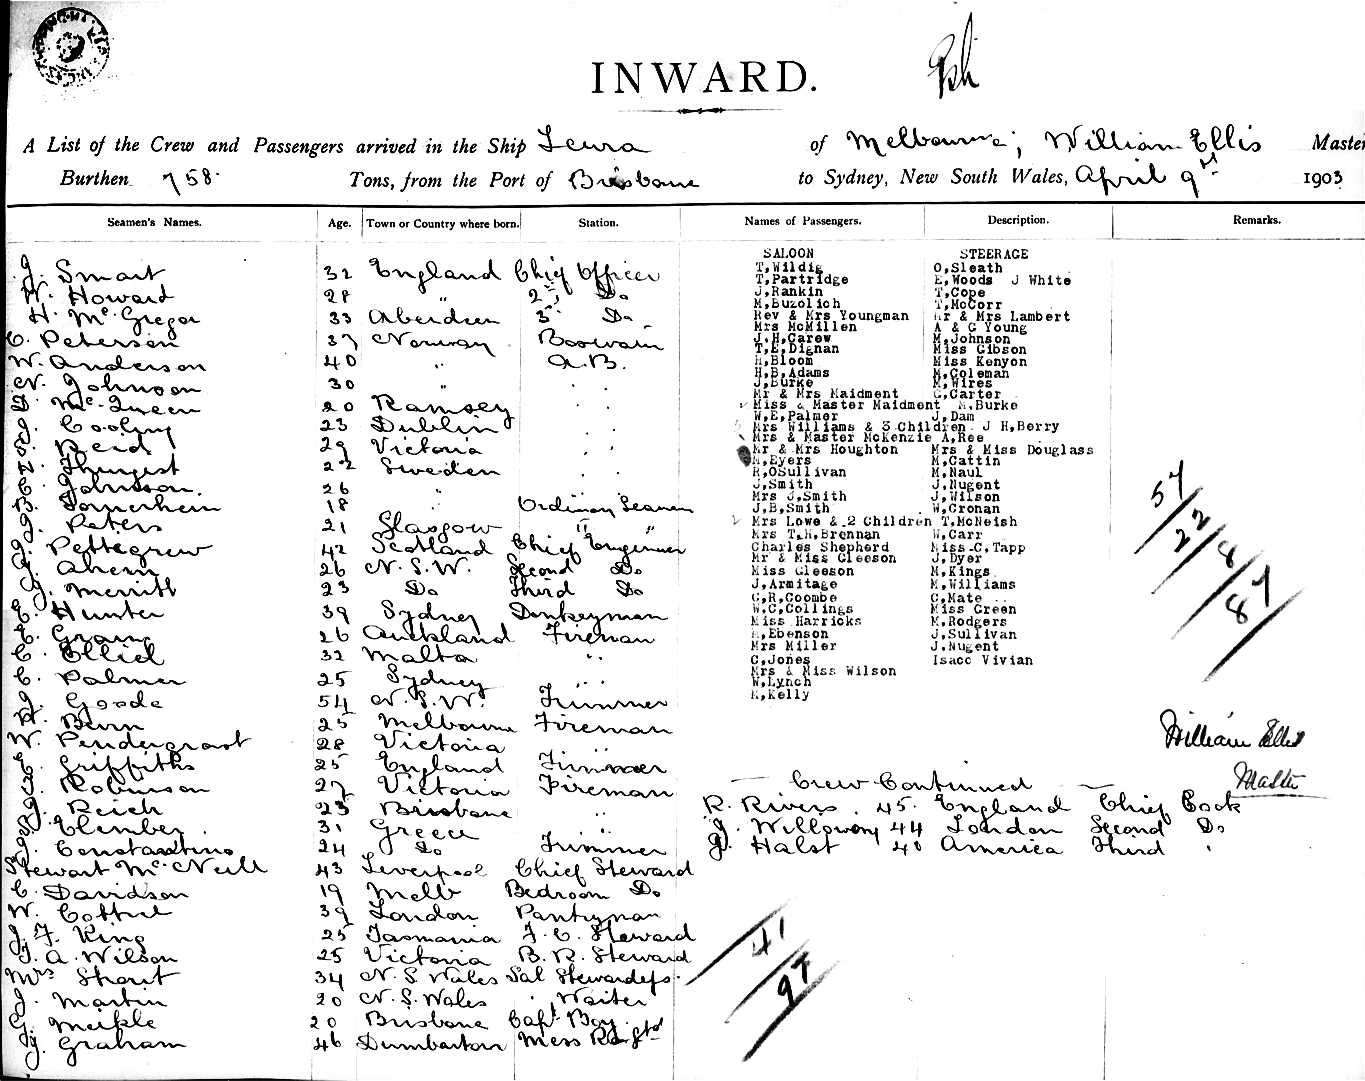 INWARD.
A List of the Crew and Passengers arrived in the Ship Leura of Melbourne; William Ellis Master
Burthen 758 Tons, from the Port of Brisbane to Sydney, New South Wales, April 9 1903
Seamen's Names. Age. Town or Country where born. Station. Names of Passengers. Description. Remarks.
J. Smart 32 England Chief Officer
W. Howard 28 " 2nd Do
H. McGregor 33 Aberdeen 3 Do
C. Peterson 37 Norway Boswain
W. Anderson 40 " A.B.
N. Johnson 30 "
D. McQueen 20 Ramsey
Cooling 23 Dublin
Reid 29 Victoria
22 Sweden
Johnson 26 "
B. 18 Ordinary Seaman
J. Peters 21 Glasgow " "
Pettegrew 42 Scotland Chief Engineer
Ahern 26 N.S.W. Second Do
J. Merritt 23 Do Third Do
E. Hunter 39 Sydney Donkeyman
E. Grant 26 Auckland Fireman
C. Ellied 32 Malta "
C. Palmer 25 Sydney
J. Goode 54 N.S.W. Trimmer
H. Bern 25 Melbourne Fireman
W. Pendergrast 28 Victoria "
Griffiths 25 England Trimmer
Robinson 27 Victoria Fireman
Reich 23 Brisbane "
31 Greece
Constantino 24 Do Trimmer
Stewart McNeill 43 Liverpool Chief Steward
C. Davidson 19 Melb Bedroom Do
W. Cottrel 39 London Pantryman
J. F. King 25 Tasmania F.C. Steward
T. A. Wilson 25 Victoria B.R. Steward
Mrs Strout 34 N.S. Wales Sal Stewardess
J. Martin 20 N.S. Wales Waiter
G. Meikle 20 Brisbane Capt Boy
J. Graham 46 Dumbarton Mess Rm Std
SALOON STEERAGE
T,Wildig O,Sleath
T,Partridge E,Woods J White
J,Rankin T,Cope
M,Buzolich T,McCorr
Rev & Mrs Youngman Mr & Mrs Lambert
Mrs McMillen A & G Young
J.H,Carew M,Johnson
T,E,Dignan Miss Gibson
H,Bloom Miss Kenyon
H,B,Adams M,Coleman
J,Burke M,Wires
Mr & Mrs Maidment C,Carter
Miss & Master Maidment M,Burke
W,E,Palmer J,Dam
Mrs Williams & 3 Children J H,Berry
Mrs & Master McKenzie A,Ree
Mr & Mrs Houghton Mrs & Miss Douglass
M,Eyers M,Cattin
R,OSullivan M,Naul
J,Smith J,Nugent
Mrs J,Smith J,Wilson
J,B,Smith W,Cronan
Mrs Lowe & 2 Children T,McNeish
Mrs T,H,Brennan W,Carr
Charles Shepherd Miss C,Tapp
Mr & Miss Gleeson J,Dyer
Miss Gleeson M,Kings
J,Armitage M,Williams
C,R,Coombe C,Mate
W,C,Collings Miss Green
Miss Harricks M,Rodgers
H,Ebenson J,Sullivan
Mrs Miller J,Nugent
C,Jones Isacc Vivian
Mrs & Miss Wilson
W,Lynch
K,Kelly
57
22
8
87
William Ellis
Master
Crew Continued
R. Rivers 45 England Chief Cook
J. Willoway 44 London Second Do
J. Halst 40 America Third "
41
97